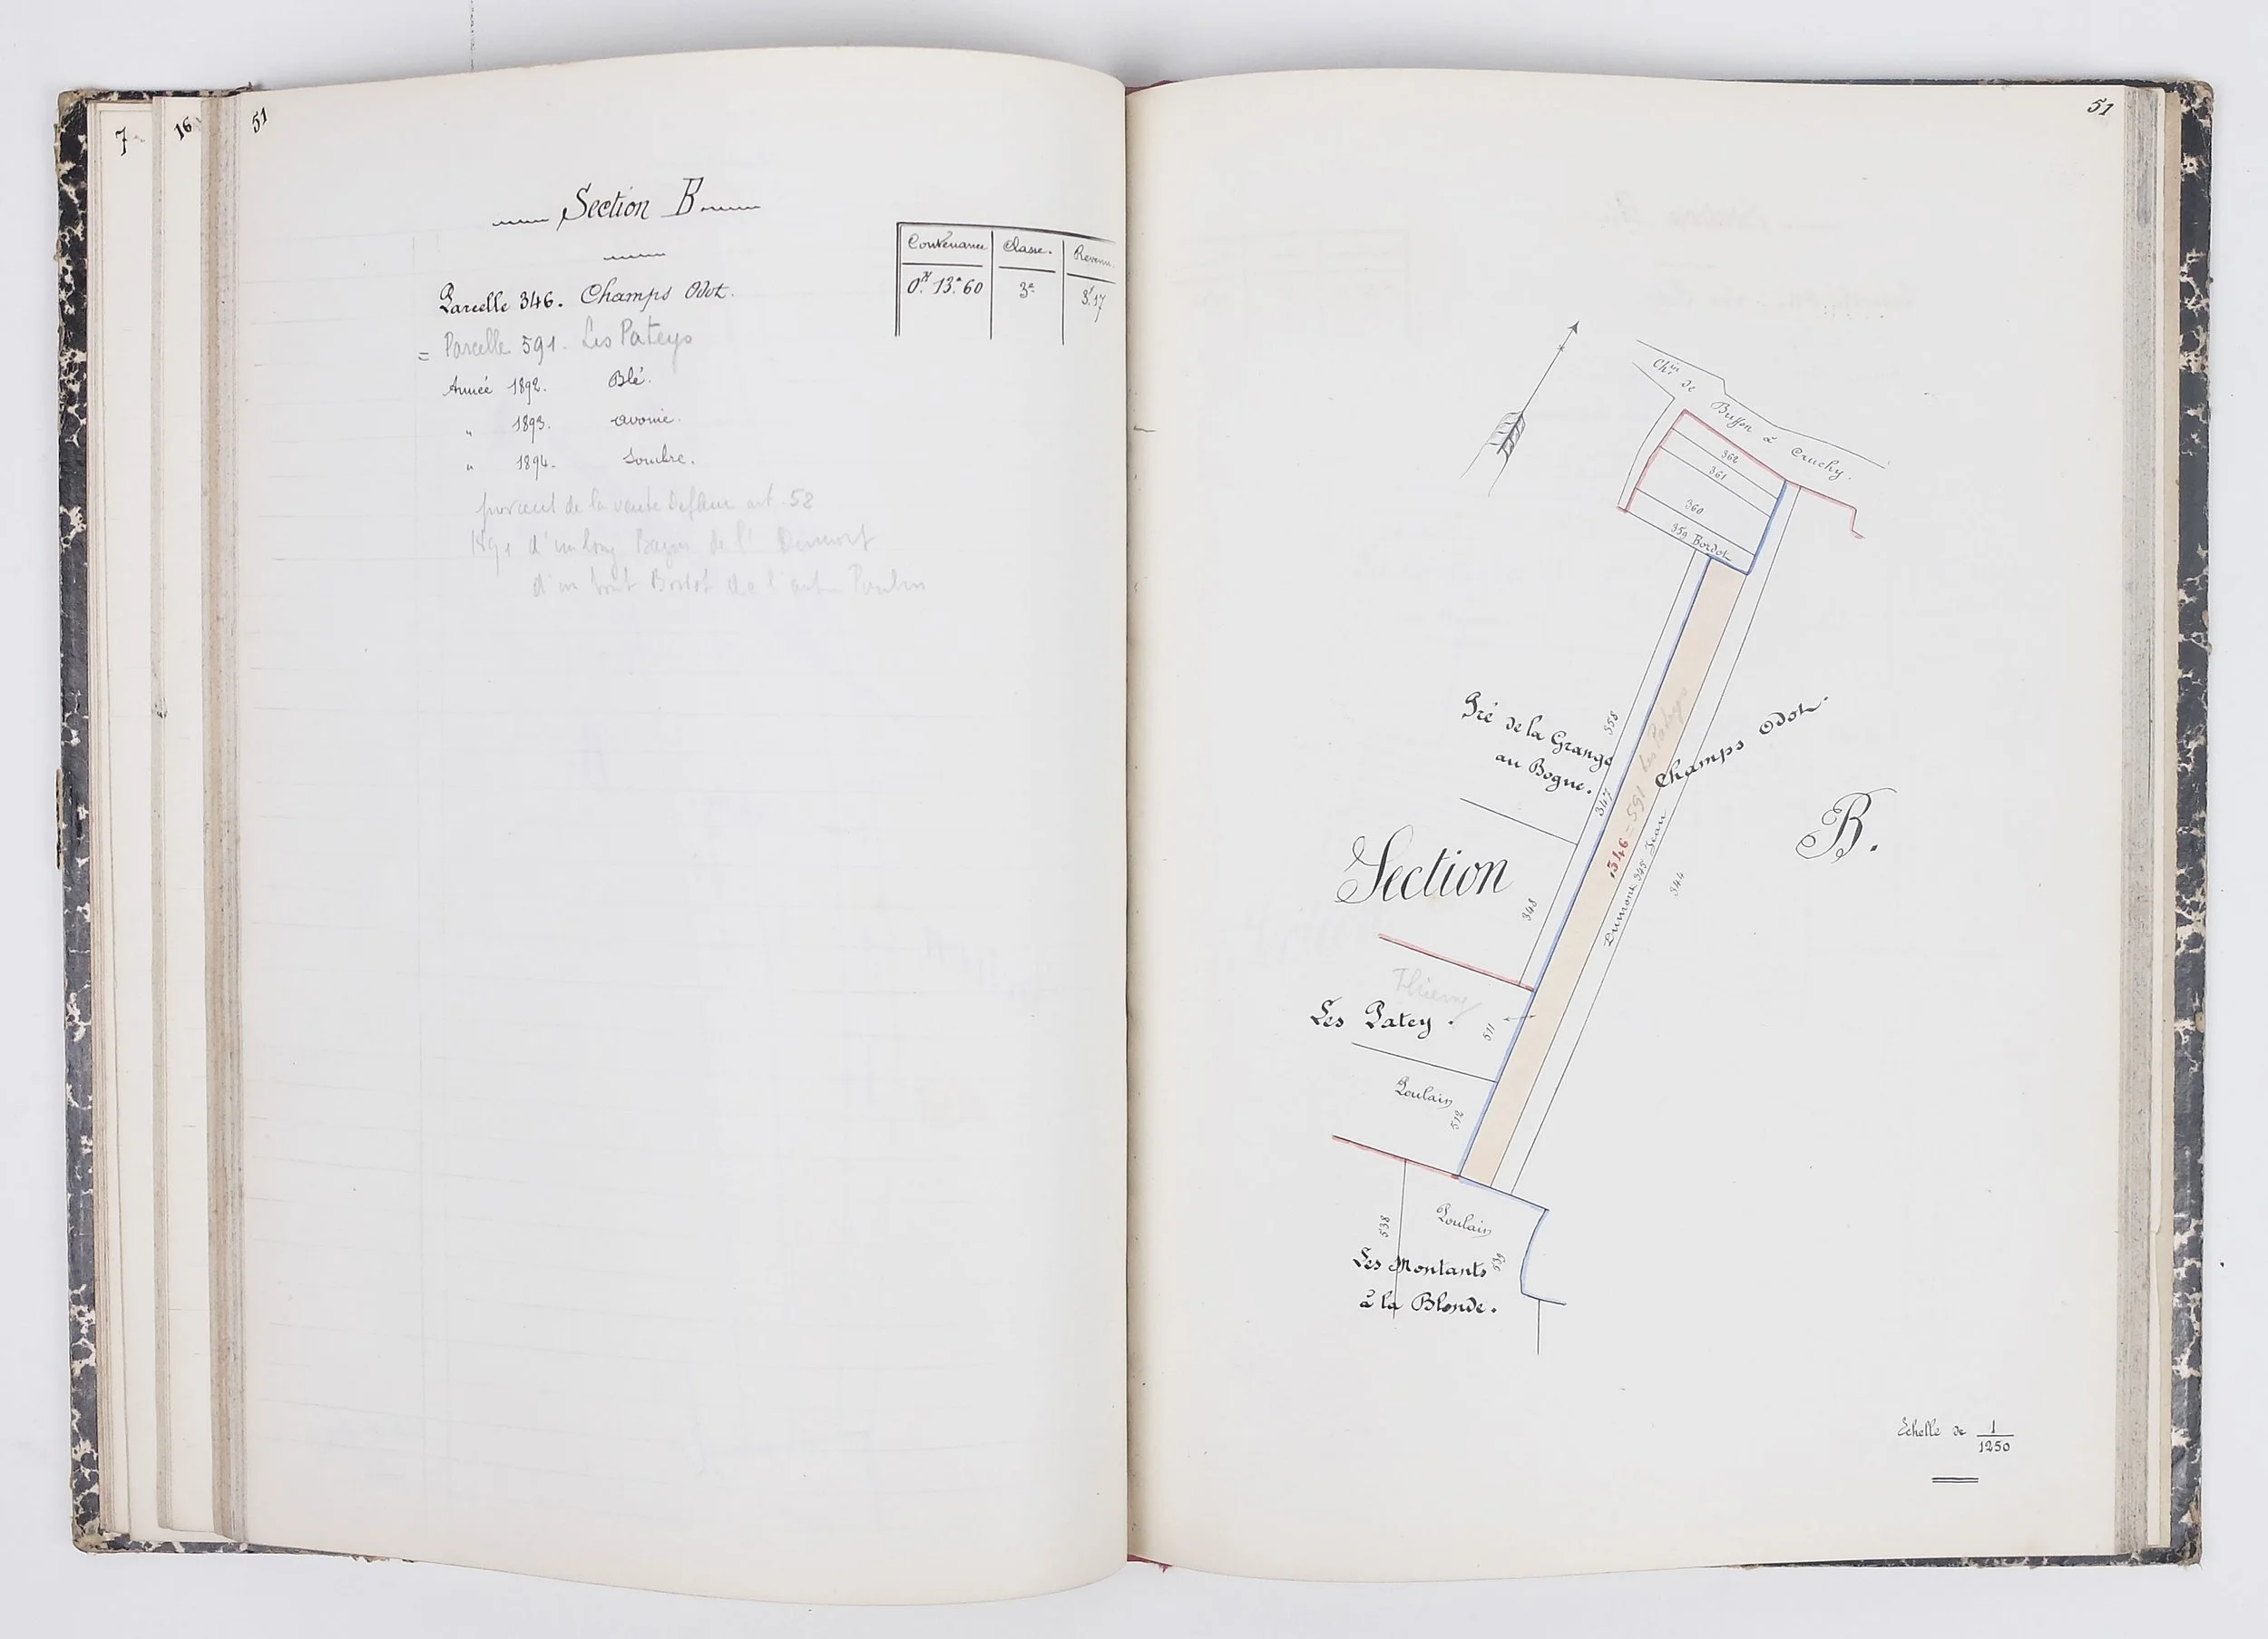 7
16
51
Section B
Contenance Classe. Revenu.
0.H 13.a 60 3e 3.f 17
Parcelle 346. Champs Odot.
= Parcelle 591. Les Pateys
Année 1892. Blé.
" 1893. avoine.
" 1894. Sombre.
provient de la vente art. 52
1891 d'un long de l'
d'un bout Bordot de l'autre Poulain
51
Chin de Buffon à Cruchy.
362
361
360
359 Bordot
358
Pré de la Grange
au Bogue.
347
346 = 591 Les Pateys
Champs Odot.
Dumont 345 Jean
344
Section B.
348
Les Patey.
511
Poulain
512
Poulain
538
539
Les Montants
à la Blonde.
Echelle de 1/1250